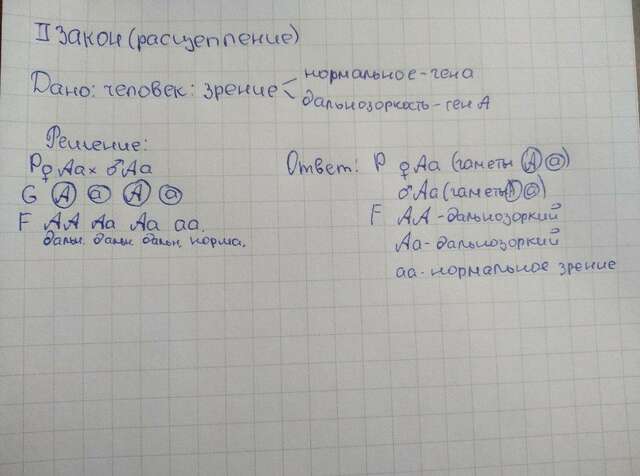 II Закон (расщепление)
Дано: человек: зрение < нормальное - ген а
дальнозоркость - ген А
Решение:
P ♀ Аа × ♂ Аа
G А а А а
F АА Аа Аа аа.
дальн. дальн. дальн. норма.
Ответ: P ♀ Аа (гаметы А а)
♂ Аа (гаметы А а)
F АА - дальнозоркий
Аа - дальнозоркий
аа - нормальное зрение